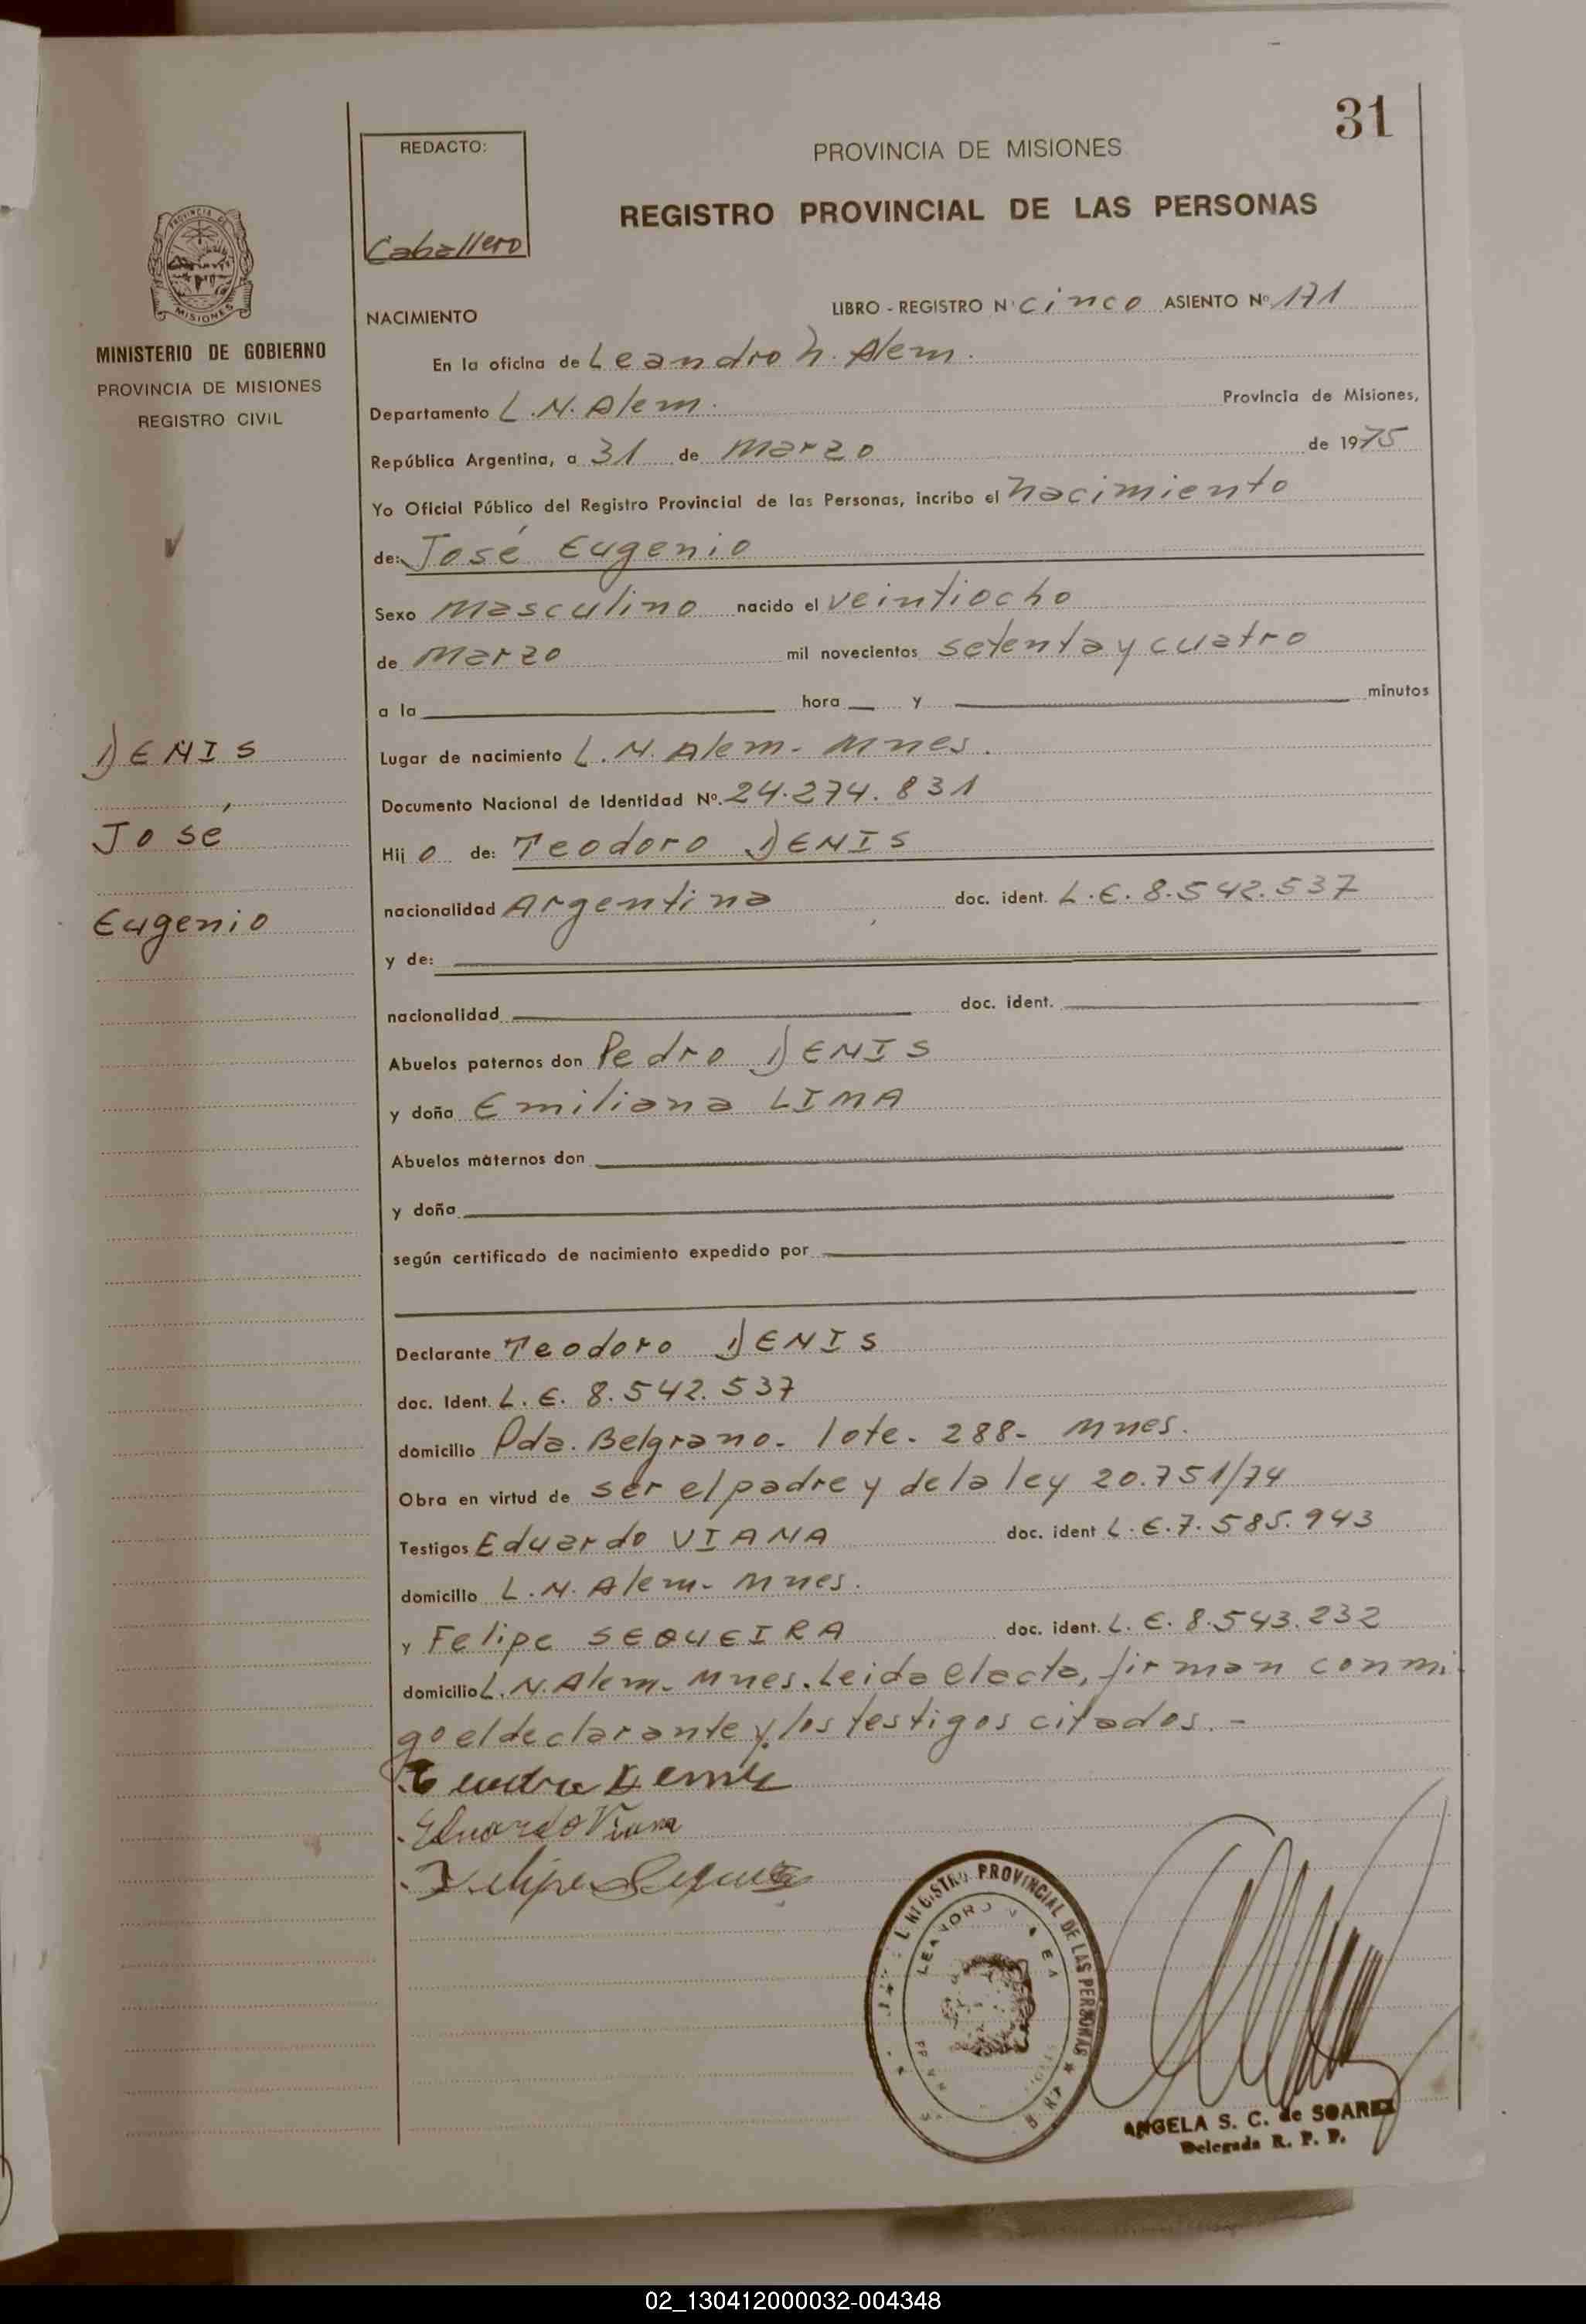 31
REDACTO:
Caballero
PROVINCIA DE MISIONES
REGISTRO PROVINCIAL DE LAS PERSONAS
PROVINCIA DE
MISIONES
MINISTERIO DE GOBIERNO
PROVINCIA DE MISIONES
REGISTRO CIVIL
NACIMIENTO
LIBRO - REGISTRO Nº cinco ASIENTO Nº 171
En la oficina de Leandro N. Alem.
Departamento L.N. Alem. Provincia de Misiones,
República Argentina, a 31 de Marzo de 1975
Yo Oficial Público del Registro Provincial de las Personas, incribo el nacimiento
de: José Eugenio
Sexo Masculino nacido el veintiocho
de Marzo mil novecientos setenta y cuatro
a la hora y minutos
Lugar de nacimiento L.N. Alem - Mnes.
Documento Nacional de Identidad Nº. 24.274.831
Hijo de: Teodoro DENIS
nacionalidad Argentina doc. ident. L.E. 8.542.537
y de:
nacionalidad doc. ident.
Abuelos paternos don Pedro DENIS
y doña Emiliana LIMA
Abuelos maternos don
y doña
según certificado de nacimiento expedido por
Declarante Teodoro DENIS
doc. Ident. L.E. 8.542.537
domicilio Pda. Belgrano - lote - 288 - Mnes.
Obra en virtud de ser el padre y de la ley 20.751/74
Testigos Eduardo VIANA doc. ident L.E. 7.585.943
domicilio L.N. Alem - Mnes.
y Felipe SEQUEIRA doc. ident. L.E. 8.543.232
domicilio L.N. Alem - Mnes. Leida el acta, firman conmi
go el declarante y los testigos citados.-
Teodoro Denis
Eduardo Viana
Felipe Sequeira
DENIS
José
Eugenio
REGISTRO PROVINCIAL DE LAS PERSONAS
ANGELA S. C. de SOAREZ
Delegada R. P. P.
02_130412000032-004348